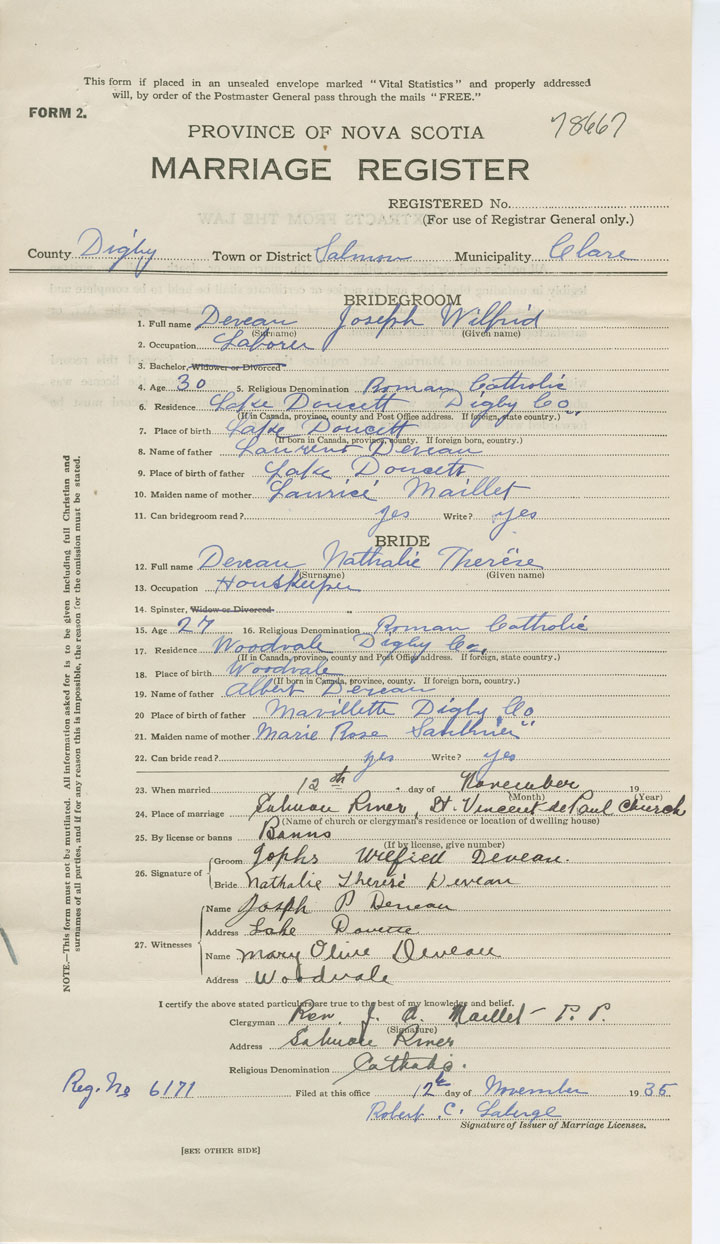 This form if placed in an unsealed envelope marked "Vital Statistics" and properly addressed
will, by order of the Postmaster General pass through the mails "FREE."
FORM 2.
78667
PROVINCE OF NOVA SCOTIA
MARRIAGE REGISTER
REGISTERED No.
(For use of Registrar General only.)
County Digby Town or District Salmon Municipality Clare
BRIDEGROOM
1. Full name Deveau Joseph Wilfrid
(Surname) (Given name)
2. Occupation Laborer
3. Bachelor, Widower or Divorced
4. Age 30 5. Religious Denomination Roman Catholic
6. Residence Lake Doucett Digby Co.,
(If in Canada, province, county and Post Office address. If foreign, state country.)
7. Place of birth Lake Doucett
(If born in Canada, province, county. If foreign born, country.)
8. Name of father Laurent Deveau
9. Place of birth of father Lake Doucett
10. Maiden name of mother Lauricé Maillet
11. Can bridegroom read? yes Write? yes
BRIDE
12. Full name Deveau Nathalie Therèse
(Surname) (Given name)
13. Occupation Houskeeper
14. Spinster, Widow or Divorced "
15. Age 27 16. Religious Denomination Roman Catholic
17. Residence Woodvale Digby Co.,
(If in Canada, province, county and Post Office address. If foreign, state country.)
18. Place of birth Woodvale
(If born in Canada, province, county. If foreign born, country.)
19. Name of father Albert Deveau
20 Place of birth of father Mavillette Digby, Co
21. Maiden name of mother Marie Rose Saulnier
22. Can bride read? yes Write? yes
23. When married 12th day of November 19
(Month) (Year)
24. Place of marriage Salmon River, St. Vincent de Paul Church
(Name of church or clergyman's residence or location of dwelling house)
25. By license or banns Banns
(If by license, give number)
26. Signature of
Groom Jophs Wilfied Deveau.
Bride Nathalie Theresé Deveau
27. Witnesses
Name Joseph P Deveau
Address Lake Doucette
Name Mary Olive Deveau
Address Woodvale
I certify the above stated particulars are true to the best of my knowledge and belief.
Clergyman Rev. J. A. Maillet - P. P.
(Signature)
Address Salmon River
Religious Denomination Catholic.
Reg. No 6171 Filed at this office 12th day of November 1935
Robert C. Laberge
Signature of Issuer of Marriage Licenses.
[SEE OTHER SIDE]
NOTE.—This form must not be mutilated. All information asked for is to be given including full Christian and
surnames of all parties, and if for any reason this is impossible, the reason for the omission must be stated.